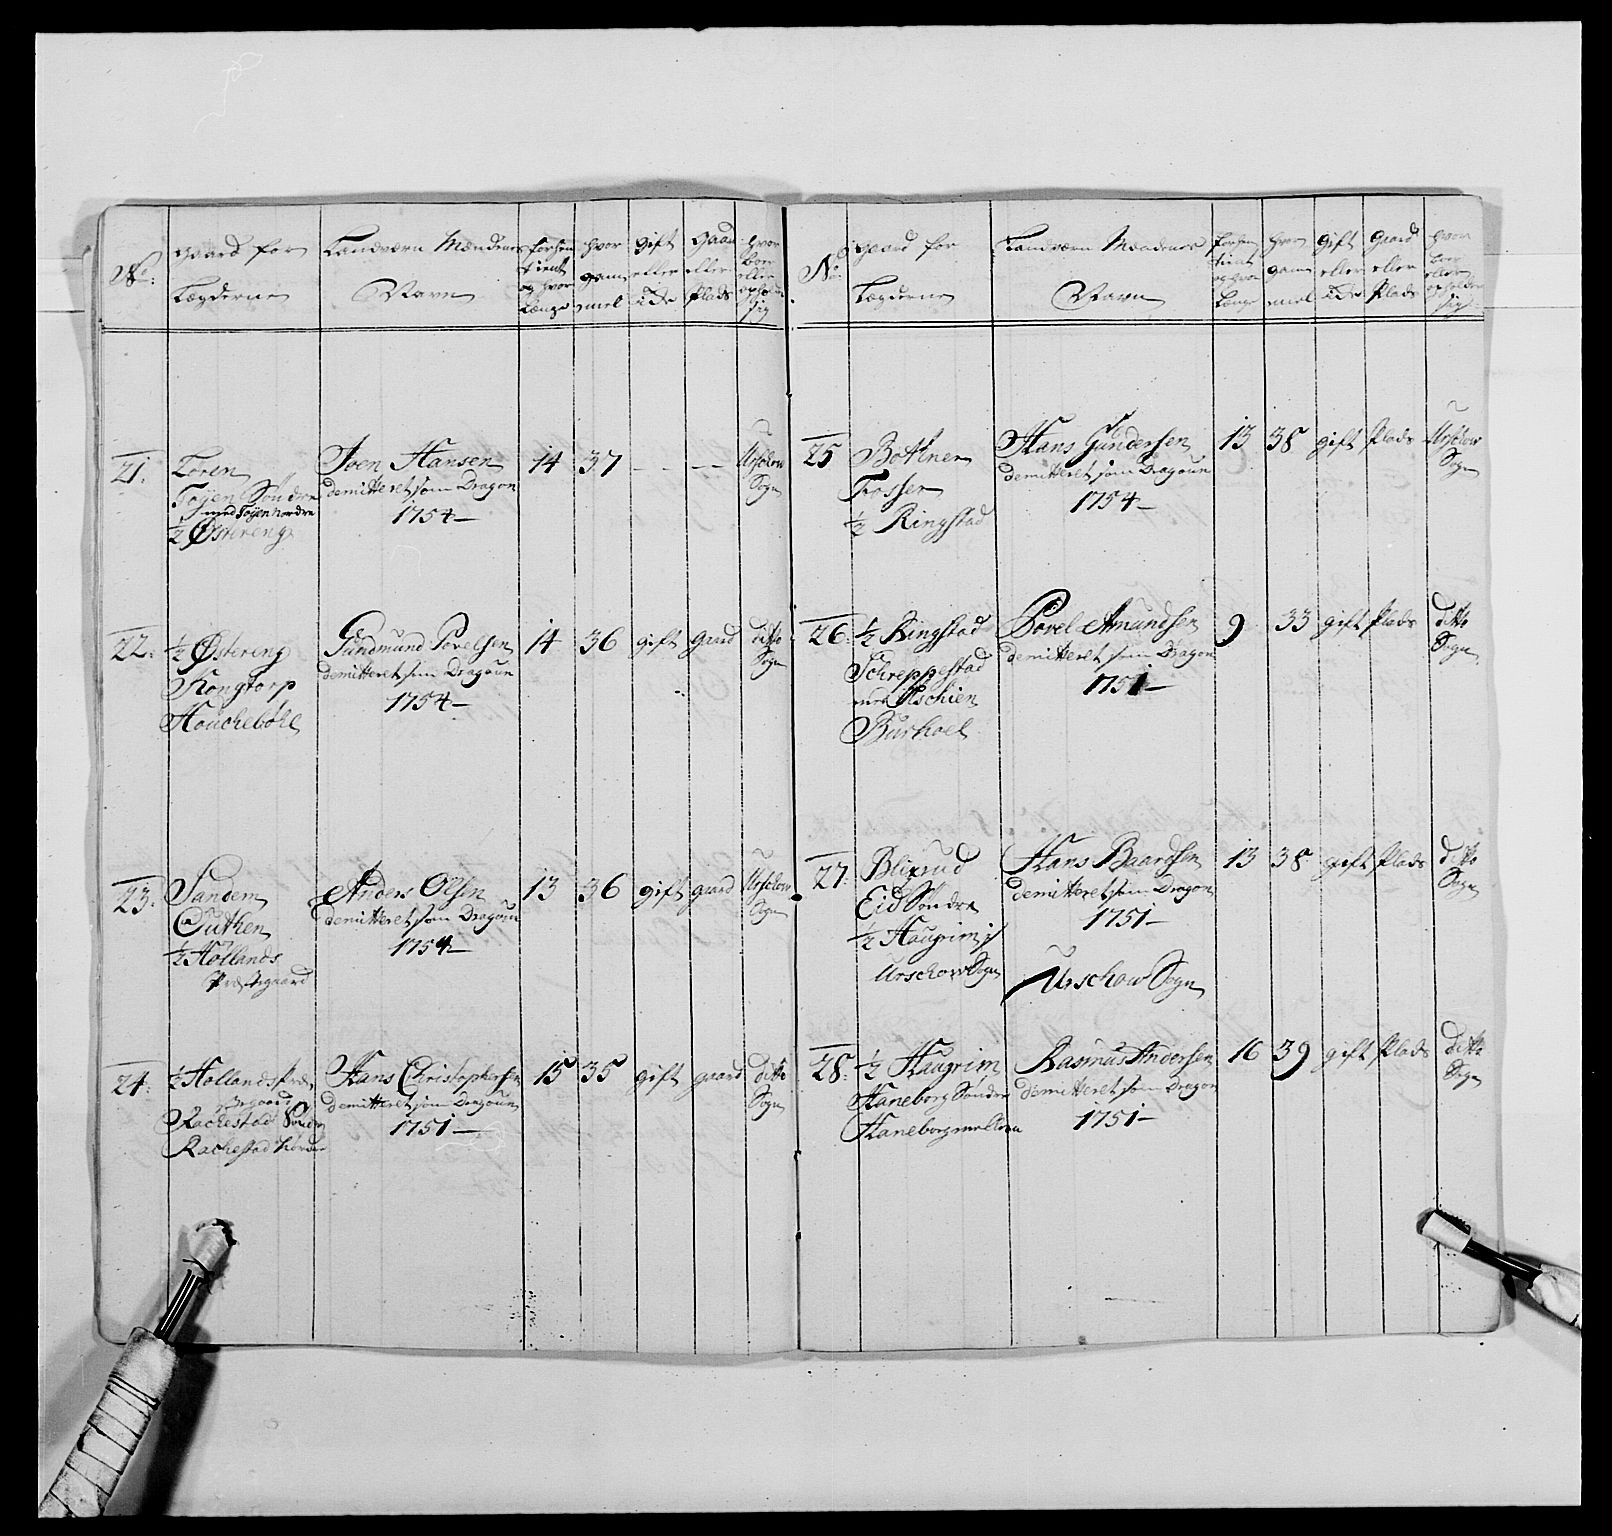 No:
gaard for
Lægderne
Landværn Mændenes
Navn
forhen
tient
og hvor
Længe
hvor
gam
mel
gift
eller
Ude
gaard
eller
Plads
hvor
boer
eller
opholder
sig
21.
Toren
Toÿen Søndre
med Toÿen Nordre
½ Østereng
Joen Hansen
demitteret som Dragon
1754
14
37
Urschow
Sogn
22.
½ Østereng
Kongtorp
Houcheböhl
Gundmund Povelsen
demitteret som Dragoun
1754
14
36
gift
gaard
ditto
Sogn
23.
Sandem
Euthen
½ Høllands
Præstegaard
Anders Olsen
demitteret som Dragoun
1754
13
36
gift
gaard
Urschow
Sogn
24.
½ Hollands Præ
stegaard
Rachestad Søndre
Rachestad Nordre
Hans Christophersen
demitteret som Dragoun
1751
15
35
gift
gaard
ditto
Sogn
No:
gaard for
Lægderne
Landværn Mændenes
Navn
forhen
tient
og hvor
Længe
hvor
gam
mel
gift
eller
Ude
gaard
eller
Plads
hvor
boer
eller
opholder
sig
25
Bottner
Fosser
½ Ringstad
Hans Gundersen
demitteret som Dragoun
1754
13
38
gift
Plads
Urschow
Sogn
26.
½ Ringstad
Schreppestad
med Aschien
Burhoel
Povel Amundsen
demitteret som Dragon
1751
9
33
gift
Plads
ditto
Sogn
27.
Blixrud
Eid Søndre
½ Haugrim i
Urschow Sogn
Hans Baardsen
demitteret som Dragon
1751
Urschow Sogn
13
38
gift
Plads
ditto
Sogn
28.
½ Haugrim
Haneborg Søndre
Haneborg mellem
Rasmus Andersen
demitteret som Dragon
1751
16
39
gift
Plads
ditto
Sogn